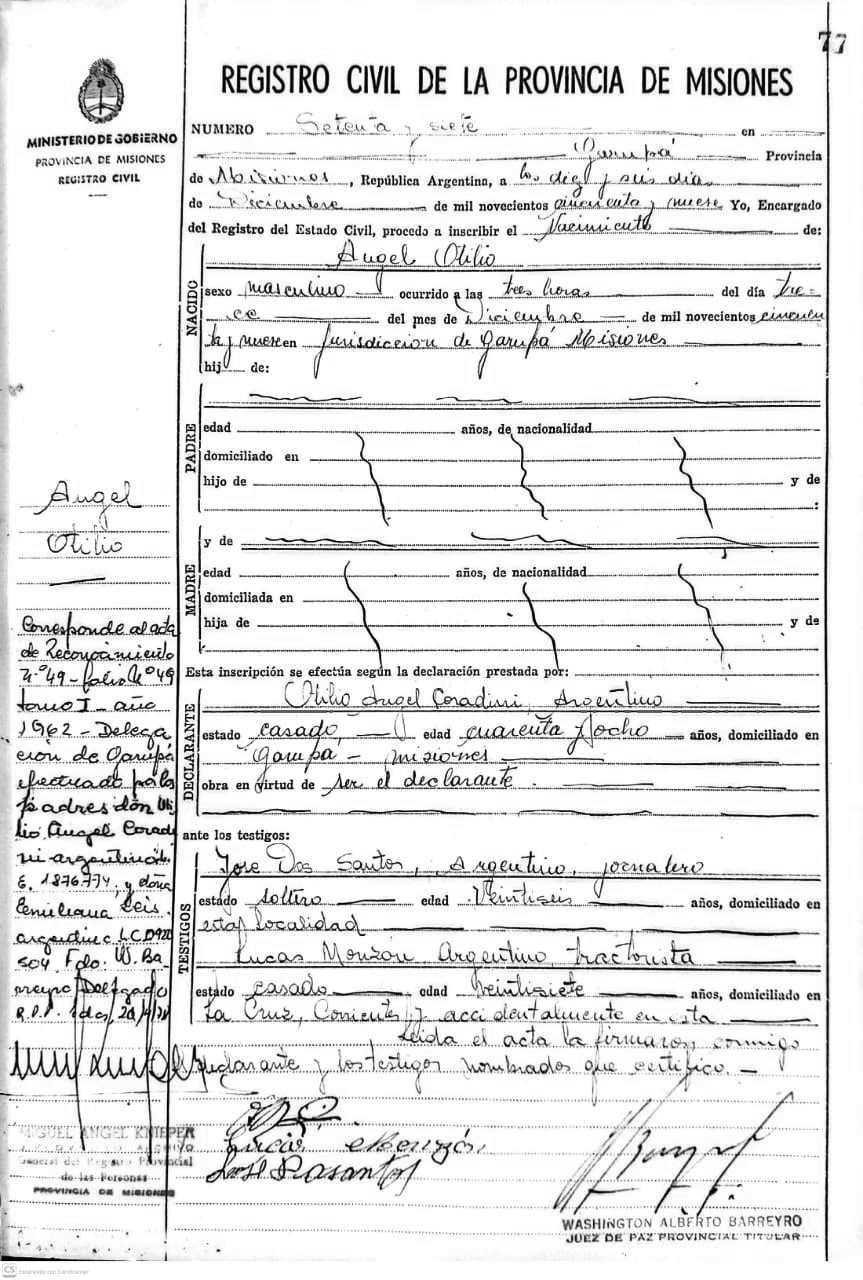 77
REGISTRO CIVIL DE LA PROVINCIA DE MISIONES
MINISTERIO DE GOBIERNO
PROVINCIA DE MISIONES
REGISTRO CIVIL
NUMERO Setenta y siete en
Garupá Provincia
de Misiones, República Argentina, a los diez y seis días
de Diciembre de mil novecientos cincuenta y nueve Yo, Encargado
del Registro del Estado Civil, procedo a inscribir el Nacimiento de:
NACIDO
Angel Otilio
sexo masculino ocurrido a las tres horas del día tre-
ce del mes de Diciembre de mil novecientos cincuen
ta y nueve en jurisdiccion de Garupá Misiones
hij de:
PADRE
edad años, de nacionalidad
domiciliado en
hijo de y de
:
MADRE
y de
edad años, de nacionalidad
domiciliada en
hija de y de
Esta inscripción se efectúa según la declaración prestada por:
DECLARANTE
Otilio Angel Coradini, Argentino
estado casado, edad cuarenta y ocho años, domiciliado en
Garupa - misiones
obra en virtud de ser el declarante.
ante los testigos:
TESTIGOS
Jose Dos Santos, Argentino, jornalero
estado soltero edad Veintiseis años, domiciliado en
esta localidad
Lucas Monzón Argentino, tractorista
estado casado edad veintisiete años, domiciliado en
La Cruz, Corrientes y accidentalmente en esta
Leida el acta la firmaron conmigo
el declarante y los testigos nombrados que certifico. -
Angel
Otilio
Corresponde al acta
de Reconocimiento
N°49 - folio N°49
tomo I - año
1962 - Delega
ción de Garupá
efectuado por los
padres don Oti
lio Angel Corad
ni argentino
E. 1876.774, y doña
Emiliana Leis
argentina L.C.
504 Fdo. W. Ba
rreyro Delegado
MIGUEL ANGEL KNIEPER
General del Registro Provincial
de las Personas
PROVINCIA DE MISIONES
WASHINGTON ALBERTO BARREYRO
JUEZ DE PAZ PROVINCIAL TITULAR
CS Escaneado con CamScanner